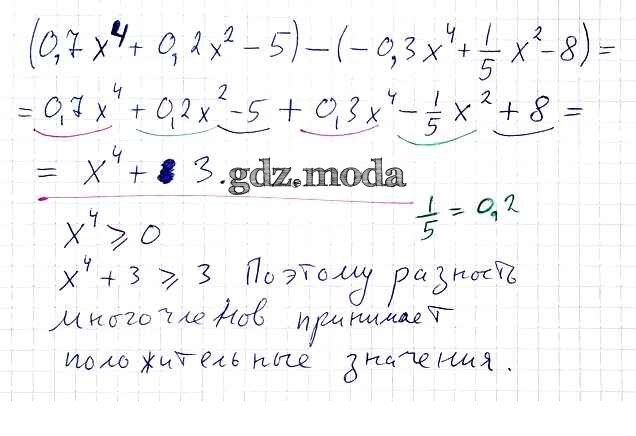 (0,7x⁴ + 0,2x² - 5) - (-0,3x⁴ + 1/5 x² - 8) =
= 0,7x⁴ + 0,2x² - 5 + 0,3x⁴ - 1/5 x² + 8 =
= x⁴ + 3 .gdz.moda
1/5 = 0,2
x⁴ ⩾ 0
x⁴ + 3 ⩾ 3 Поэтому разность
многочленов принимает
положительные значения.